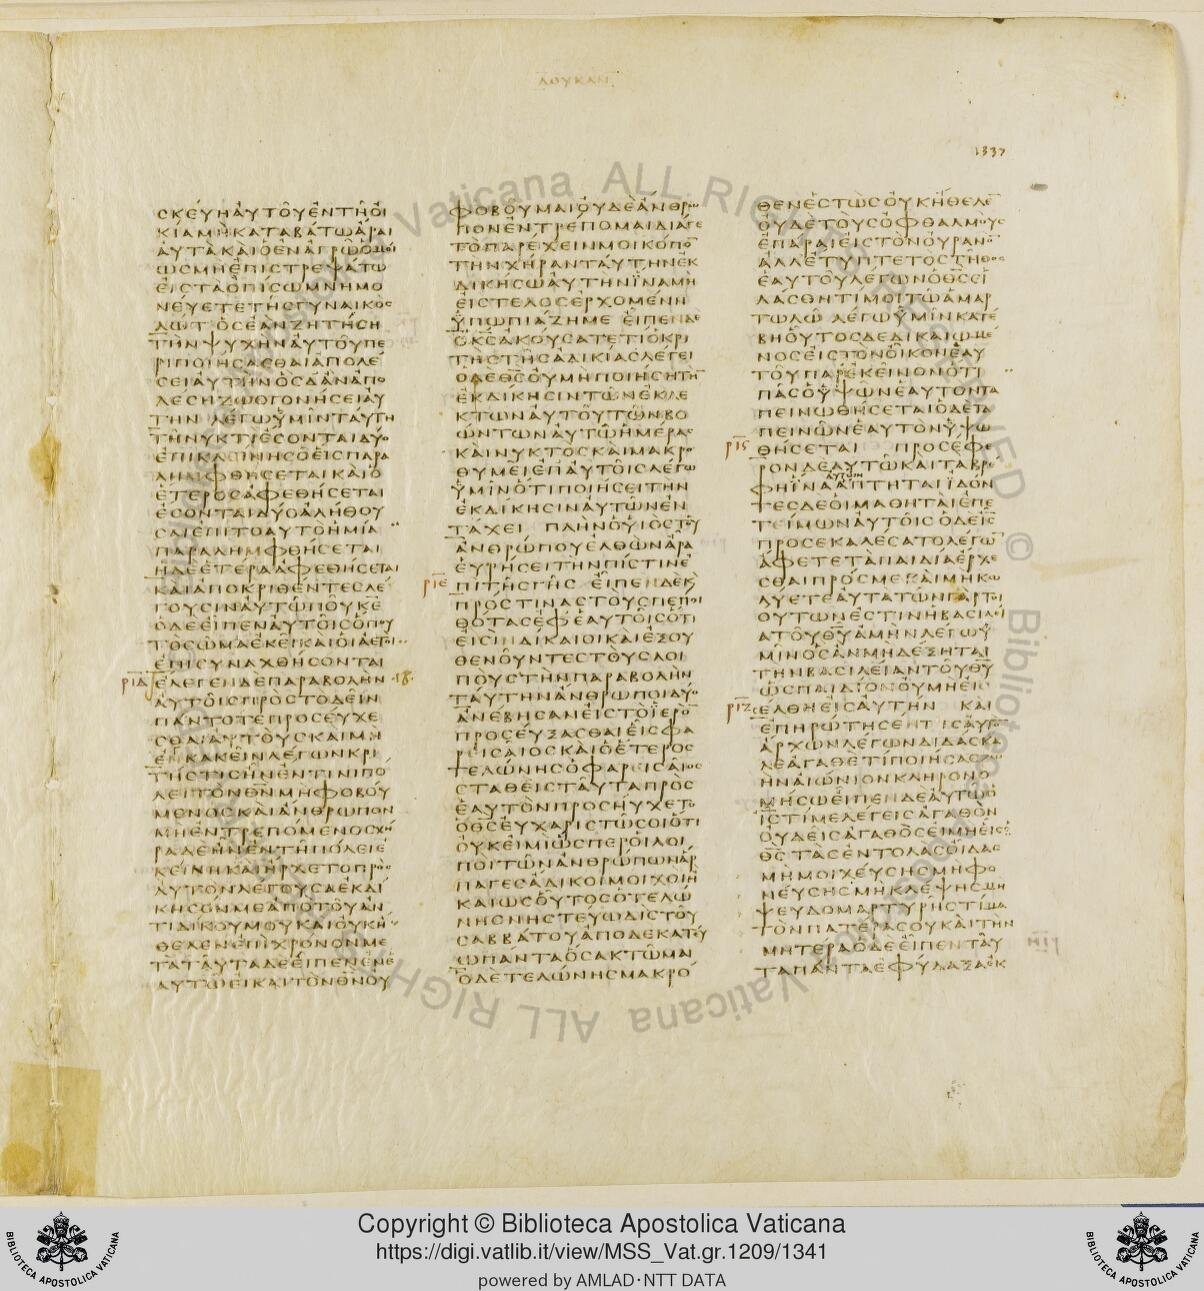 ΛΟΥΚΑΝ
1337
ΣΚΕΥΗΑΥΤΟΥΕΝΤΗΟΙ
ΚΙΑΜΗΚΑΤΑΒΑΤΩΑΡΑΙ
ΑΥΤΑΚΑΙΟΕΝΑΓΡΩΟΜΟΙ
ΩΣΜΗΕΠΙΣΤΡΕΨΑΤΩ
ΕΙΣΤΑΟΠΙΣΩΜΝΗΜΟ
ΝΕΥΕΤΕΤΗΣΓΥΝΑΙΚΟΣ
ΛΩΤ ΟΣΕΑΝΖΗΤΗΣΗ
ΤΗΝΨΥΧΗΝΑΥΤΟΥΠΕ
ΡΙΠΟΙΗΣΑΣΘΑΙΑΠΟΛΕ
ΣΕΙΑΥΤΗΝΟΣΔΑΝΑΠΟ
ΛΕΣΗΖΩΟΓΟΝΗΣΕΙΑΥ
ΤΗΝ ΛΕΓΩΥΜΙΝΤΑΥΤΗ
ΤΗΝΥΚΤΙΕΣΟΝΤΑΙΔΥΟ
ΕΠΙΚΛΙΝΗΣΟΕΙΣΠΑΡΑ
ΛΗΜΦΘΗΣΕΤΑΙΚΑΙΟ
ΕΤΕΡΟΣΑΦΕΘΗΣΕΤΑΙ
ΕΣΟΝΤΑΙΔΥΟΑΛΗΘΟΥ
ΣΑΙΕΠΙΤΟΑΥΤΟΗΜΙΑ
ΠΑΡΑΛΗΜΦΘΗΣΕΤΑΙ
ΗΔΕΕΤΕΡΑΑΦΕΘΗΣΕΤΑΙ
ΚΑΙΑΠΟΚΡΙΘΕΝΤΕΣΛΕ
ΓΟΥΣΙΝΑΥΤΩΠΟΥΚΕ
ΟΔΕΕΙΠΕΝΑΥΤΟΙΣΟΠΟΥ
ΤΟΣΩΜΑΕΚΕΙΚΑΙΟΙΑΕΤΟΙ
ΕΠΙΣΥΝΑΧΘΗΣΟΝΤΑΙ
ριδ ΕΛΕΓΕΝΔΕΠΑΡΑΒΟΛΗΝ ·ιη·
ΑΥΤΟΙΣΠΡΟΣΤΟΔΕΙΝ
ΠΑΝΤΟΤΕΠΡΟΣΕΥΧΕ
ΣΘΑΙΑΥΤΟΥΣΚΑΙΜΗ
ΕΝΚΑΚΕΙΝΛΕΓΩΝΚΡΙ
ΤΗΣΤΙΣΗΝΕΝΤΙΝΙΠΟ
ΛΕΙΤΟΝΘΝΜΗΦΟΒΟΥ
ΜΕΝΟΣΚΑΙΑΝΘΡΩΠΟΝ
ΜΗΕΝΤΡΕΠΟΜΕΝΟΣΧΗ
ΡΑΔΕΗΝΕΝΤΗΠΟΛΕΙΕ
ΚΕΙΝΗΚΑΙΗΡΧΕΤΟΠΡΟΣ
ΑΥΤΟΝΛΕΓΟΥΣΑΕΚΔΙ
ΚΗΣΟΝΜΕΑΠΟΤΟΥΑΝ
ΤΙΔΙΚΟΥΜΟΥΚΑΙΟΥΚΗ
ΘΕΛΕΝΕΠΙΧΡΟΝΟΝΜΕ
ΤΑΤΑΥΤΑΔΕΕΙΠΕΝΕΝΕ
ΑΥΤΩΕΙΚΑΙΤΟΝΘΝΟΥ
ΦΟΒΟΥΜΑΙΟΥΔΕΑΝΘΡΩ
ΠΟΝΕΝΤΡΕΠΟΜΑΙΔΙΑΓΕ
ΤΟΠΑΡΕΧΕΙΝΜΟΙΚΟΠΟ
ΤΗΝΧΗΡΑΝΤΑΥΤΗΝΕΚ
ΔΙΚΗΣΩΑΥΤΗΝΙΝΑΜΗ
ΕΙΣΤΕΛΟΣΕΡΧΟΜΕΝΗ
ΥΠΩΠΙΑΖΗΜΕ ΕΙΠΕΝΔΕ
ΟΚΣΑΚΟΥΣΑΤΕΤΙΟΚΡΙ
ΤΗΣΤΗΣΑΔΙΚΙΑΣΛΕΓΕΙ
ΟΔΕΘΣΟΥΜΗΠΟΙΗΣΗΤΗ
ΕΚΔΙΚΗΣΙΝΤΩΝΕΚΛΕ
ΚΤΩΝΑΥΤΟΥΤΩΝΒΟ
ΩΝΤΩΝΑΥΤΩΗΜΕΡΑΣ
ΚΑΙΝΥΚΤΟΣΚΑΙΜΑΚΡΟ
ΘΥΜΕΙΕΠΑΥΤΟΙΣΛΕΓΩ
ΥΜΙΝΟΤΙΠΟΙΗΣΕΙΤΗΝ
ΕΚΔΙΚΗΣΙΝΑΥΤΩΝΕΝ
ΤΑΧΕΙ ΠΛΗΝΟΥΙΟΣΤΟΥ
ΑΝΘΡΩΠΟΥΕΛΘΩΝΑΡΑ
ΕΥΡΗΣΕΙΤΗΝΠΙΣΤΙΝΕ
ριε ΠΙΤΗΣΓΗΣ ΕΙΠΕΝΔΕΚ
ΠΡΟΣΤΙΝΑΣΤΟΥΣΠΕΠΟΙ
ΘΟΤΑΣΕΦΕΑΥΤΟΙΣΟΤΙ
ΕΙΣΙΝΔΙΚΑΙΟΙΚΑΙΕΞΟΥ
ΘΕΝΟΥΝΤΕΣΤΟΥΣΛΟΙ
ΠΟΥΣΤΗΝΠΑΡΑΒΟΛΗΝ
ΤΑΥΤΗΝΑΝΘΡΩΠΟΙΔΥΟ
ΑΝΕΒΗΣΑΝΕΙΣΤΟΙΕΡΟ
ΠΡΟΣΕΥΞΑΣΘΑΙΕΙΣΦΑ
ΡΕΙΣΑΙΟΣΚΑΙΟΕΤΕΡΟΣ
ΤΕΛΩΝΗΣΟΦΑΡΕΙΣΑΙΟΣ
ΣΤΑΘΕΙΣΤΑΥΤΑΠΡΟΣ
ΕΑΥΤΟΝΠΡΟΣΗΥΧΕΤΟ
ΟΘΣΕΥΧΑΡΙΣΤΩΣΟΙΟΤΙ
ΟΥΚΕΙΜΙΩΣΠΕΡΟΙΛΟΙ
ΠΟΙΤΩΝΑΝΘΡΩΠΩΝΑΡ
ΠΑΓΕΣΑΔΙΚΟΙΜΟΙΧΟΙΗ
ΚΑΙΩΣΟΥΤΟΣΟΤΕΛΩ
ΝΗΣΝΗΣΤΕΥΩΔΙΣΤΟΥ
ΣΑΒΒΑΤΟΥΑΠΟΔΕΚΑΤΕΥ
ΩΠΑΝΤΑΟΣΑΚΤΩΜΑΙ
ΟΔΕΤΕΛΩΝΗΣΜΑΚΡΟ
ΘΕΝΕΣΤΩΣΟΥΚΗΘΕΛΕ
ΟΥΔΕΤΟΥΣΟΦΘΑΛΜΟΥΣ
ΕΠΑΡΑΙΕΙΣΤΟΝΟΥΡΑΝΟ
ΑΛΛΕΤΥΠΤΕΤΟΣΤΗΘΟΣ
ΕΑΥΤΟΥΛΕΓΩΝΟΘΣΕΙ
ΛΑΣΘΗΤΙΜΟΙΤΩΑΜΑΡ
ΤΩΛΩ ΛΕΓΩΥΜΙΝΚΑΤΕ
ΒΗΟΥΤΟΣΔΕΔΙΚΑΙΩΜΕ
ΝΟΣΕΙΣΤΟΝΟΙΚΟΝΕΑΥ
ΤΟΥΠΑΡΕΚΕΙΝΟΝΟΤΙ
ΠΑΣΟΥΨΩΝΕΑΥΤΟΝΤΑ
ΠΕΙΝΩΘΗΣΕΤΑΙΟΔΕΤΑ
ΠΕΙΝΩΝΕΑΥΤΟΝΥΨΩ
ρις ΘΗΣΕΤΑΙ ΠΡΟΣΕΦΕ
ΡΟΝΔΕΑΥΤΩΚΑΙΤΑΒΡΕ
ΑΥΤΩΝ
ΦΗΙΝΑΑΠΤΗΤΑΙΙΔΟΝ
ΤΕΣΔΕΟΙΜΑΘΗΤΑΙΕΠΕ
ΤΕΙΜΩΝΑΥΤΟΙΣΟΔΕΙΣ
ΠΡΟΣΕΚΑΛΕΣΑΤΟΛΕΓΩ
ΑΦΕΤΕΤΑΠΑΙΔΙΑΕΡΧΕ
ΣΘΑΙΠΡΟΣΜΕΚΑΙΜΗΚΩ
ΛΥΕΤΕΑΥΤΑΤΩΝΓΑΡΤΟΙ
ΟΥΤΩΝΕΣΤΙΝΗΒΑΣΙΛΕΙ
ΑΤΟΥΘΥΑΜΗΝΛΕΓΩΥ
ΜΙΝΟΣΑΝΜΗΔΕΞΗΤΑΙ
ΤΗΝΒΑΣΙΛΕΙΑΝΤΟΥΘΥ
ΩΣΠΑΙΔΙΟΝΟΥΜΗΕΙΣ
ριζ ΕΛΘΗΕΙΣΑΥΤΗΝ ΚΑΙ
ΕΠΗΡΩΤΗΣΕΝΤΙΣΑΥΤΟ
ΑΡΧΩΝΛΕΓΩΝΔΙΔΑΣΚΑ
ΛΕΑΓΑΘΕΤΙΠΟΙΗΣΑΣΖΩ
ΗΝΑΙΩΝΙΟΝΚΛΗΡΟΝΟ
ΜΗΣΩΕΙΠΕΝΔΕΑΥΤΩΟ
ΙΣΤΙΜΕΛΕΓΕΙΣΑΓΑΘΟΝ
ΟΥΔΕΙΣΑΓΑΘΟΣΕΙΜΗΕΙΣ
ΘΣ ΤΑΣΕΝΤΟΛΑΣΟΙΔΑΣ
ΜΗΜΟΙΧΕΥΣΗΣΜΗΦΟ
ΝΕΥΣΗΣΜΗΚΛΕΨΗΣΜΗ
ΨΕΥΔΟΜΑΡΤΥΡΗΣΤΙΜΑ
ΤΟΝΠΑΤΕΡΑΣΟΥΚΑΙΤΗΝ
ΜΗΤΕΡΑΟΔΕΕΙΠΕΝΤΑΥ
ΤΑΠΑΝΤΑΕΦΥΛΑΞΑΕΚ
Vaticana ALL RIGHTS RESERVED © Biblioteca Apostolica Vaticana ALL RIGHTS
BIBLIOTECA APOSTOLICA VATICANA
Copyright © Biblioteca Apostolica Vaticana
https://digi.vatlib.it/view/MSS_Vat.gr.1209/1341
powered by AMLAD·NTT DATA
BIBLIOTECA APOSTOLICA VATICANA